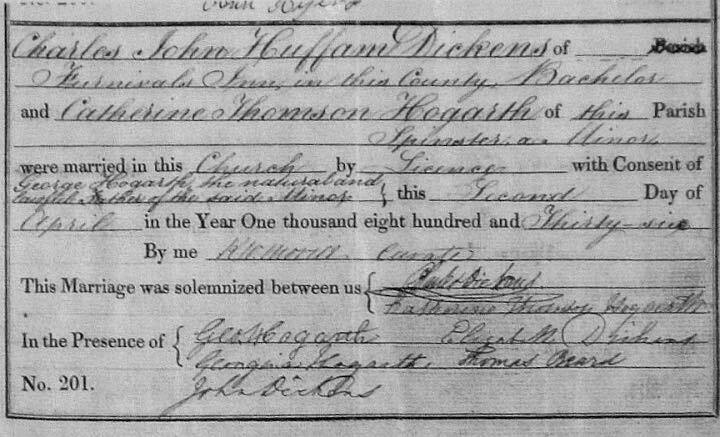 Charles John Huffam Dickens of Parish
Furnivals Inn, in this County, Bachelor
and Catherine Thomson Hogarth of this Parish
Spinster, a Minor,
were married in this Church by Licence with Consent of
George Hogarth, the natural and
lawful Father of the said Minor } this Second Day of
April in the Year One thousand eight hundred and Thirty-six
By me Curate
This Marriage was solemnized between us { Charles Dickens
Katherine Thomson Hogarth
In the Presence of { Geo Hogarth Elizabeth Dickens
Georgina Hogarth, Thomas Beard
No. 201. John Dickens